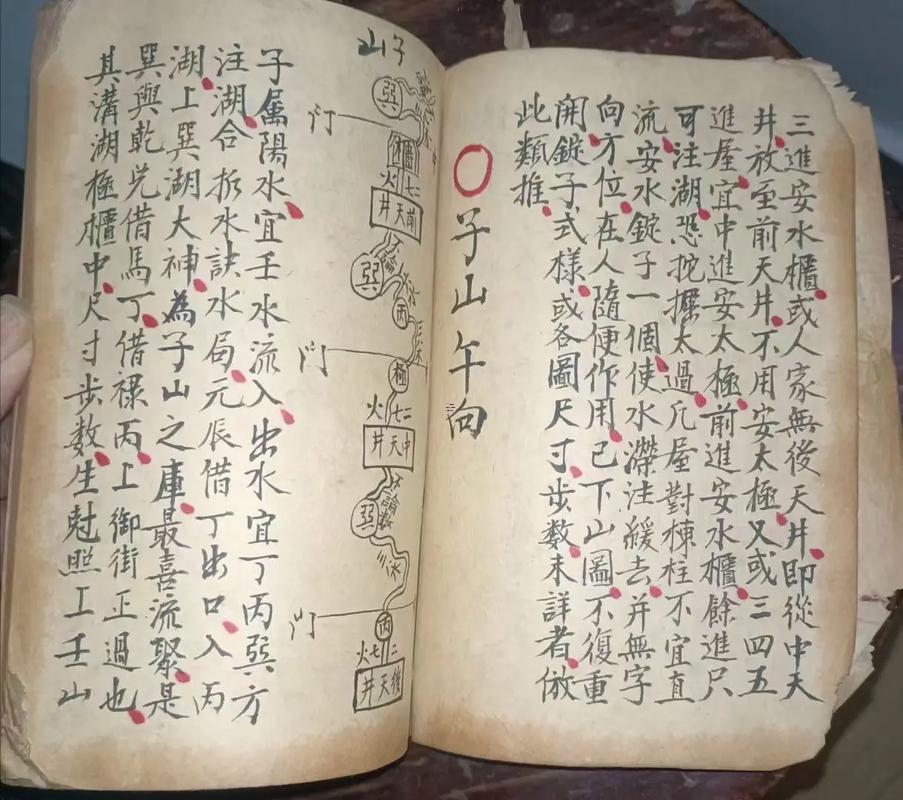 三進安水櫃或人家無後天井即從中天
井放至前天井不用安太極又或三四五
進屋宜中進安太極前進安水櫃餘進尺
可注湖恐挖揲太過凢屋對棟柱不宜直
流安水錠子一個使水滯注緩去并無字
向方位在人隨便作用已下山圖不復重
開錠子式樣或各圖尺寸步数未詳者倣
此類推
子山午向
子山
巽
門
櫃
火
七二
前天井
巽
丙
門
極
火
七二
中天井
巽
水
門
丙
火
七二
後天井
子属陽水宜壬水流入出水宜丁丙巽方
注湖合拆水訣水局元辰借丁出口入丙
湖上巽湖大神為子山之庫最喜流聚是
巽與乾兑借馬丁借禄丙上御街正過也
其溝湖極櫃中尺寸步数生尅照工壬山